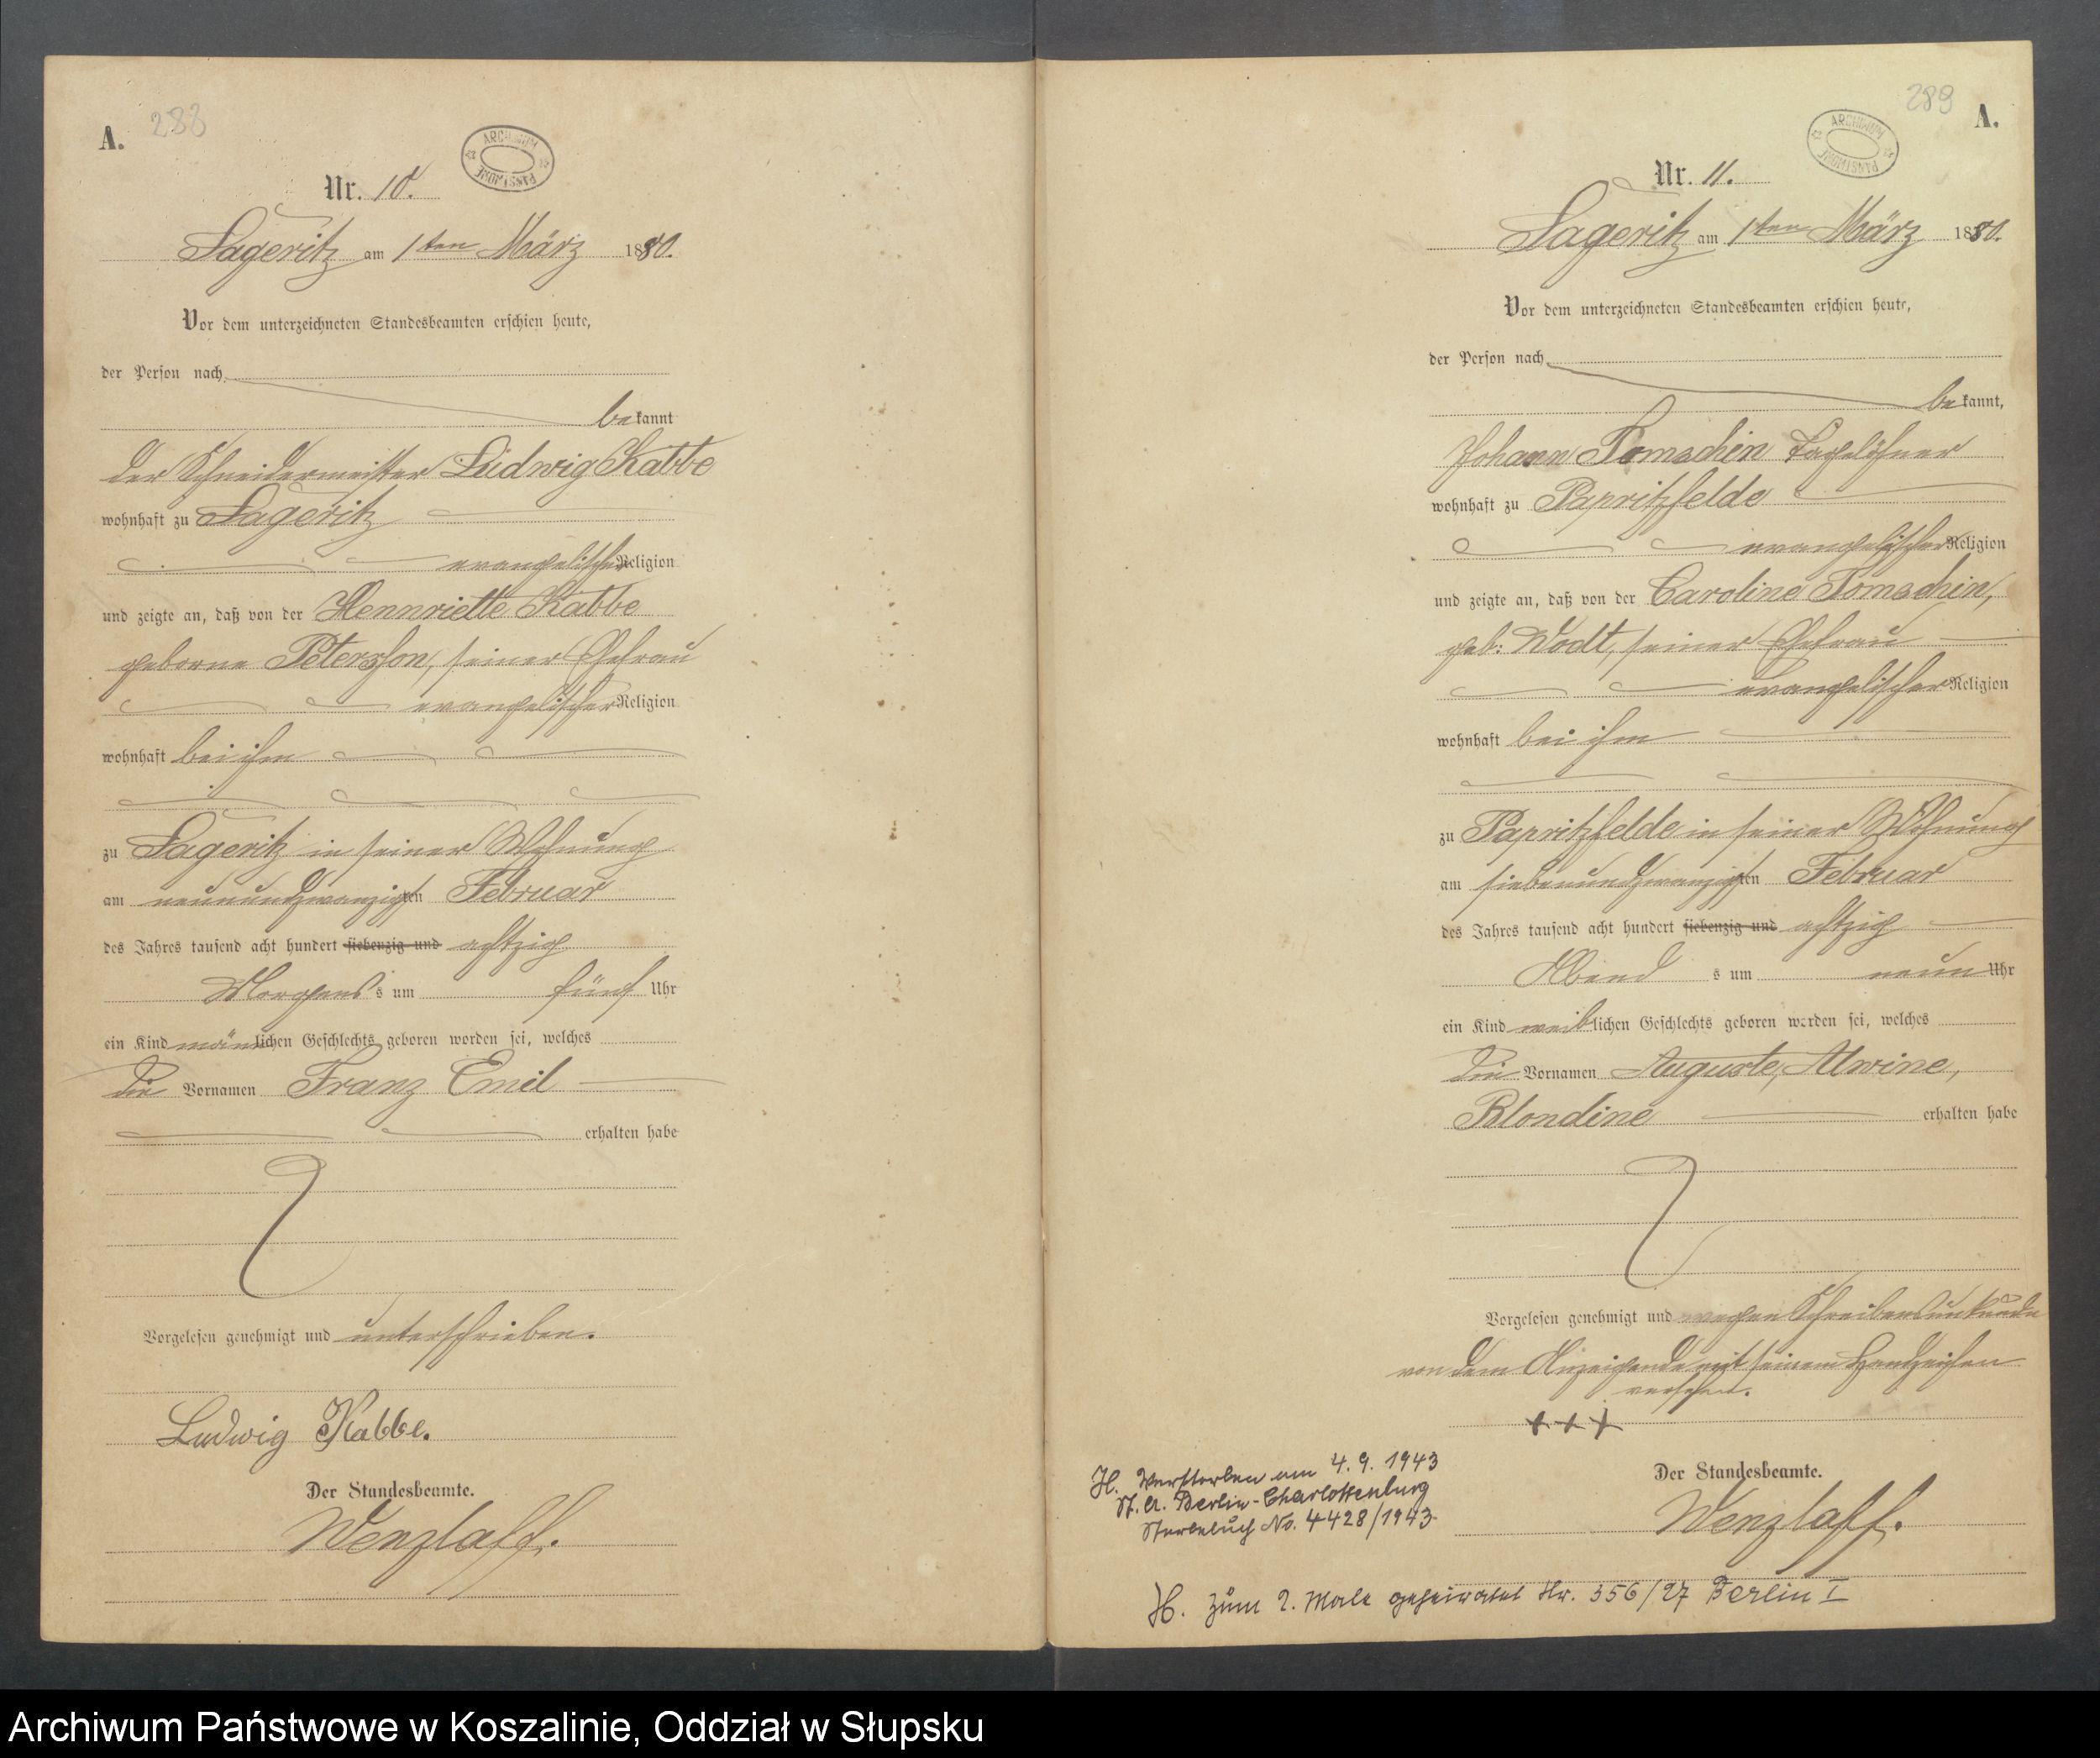 A. 288
ARCHIWUM PAŃSTWOWE
Nr. 10.
Lageritz am 1ten März 1880.
Vor dem unterzeichneten Standesbeamten erschien heute,
der Person nach
bekannt
der Schneidermeister Ludwig Kabbe
wohnhaft zu Lageritz
evangelischer Religion
und zeigte an, daß von der Hennriette Kabbe
geborne Petersson, seiner Ehefrau
evangelischer Religion
wohnhaft bei ihm
zu Lageritz in seiner Wohnung
am neunundzwanzigsten Februar
des Jahres tausend acht hundert siebenzig und achtzig
Morgens s um fünf Uhr
ein Kind männlichen Geschlechts geboren worden sei, welches
die Vornamen Franz Emil
erhalten habe
Vorgelesen genehmigt und unterschrieben.
Ludwig Kabbe.
Der Standesbeamte.
Wenzlaff.
289 A.
ARCHIWUM PAŃSTWOWE
Nr. 11.
Lageritz am 1ten März 1880.
Vor dem unterzeichneten Standesbeamten erschien heute,
der Person nach
bekannt,
Johann Tomschin Tagelöhner
wohnhaft zu Papritzfelde
evangelischer Religion
und zeigte an, daß von der Caroline Tomschin,
geb: Wodt, seiner Ehefrau
evangelischer Religion
wohnhaft bei ihm
zu Papritzfelde in seiner Wohnung
am siebenundzwanzigsten Februar
des Jahres tausend acht hundert siebenzig und achtzig
Abend s um neun Uhr
ein Kind weiblichen Geschlechts geboren worden sei, welches
die Vornamen Auguste, Alwine,
Blondine erhalten habe
Vorgelesen genehmigt und wegen Schreibensunkunde
von dem Anzeigende mit seinem Handzeichen
versehen.
+++
Der Standesbeamte.
Wenzlaff.
H. Verstorben am 4. 9. 1943
St. A. Berlin-Charlottenburg
Sterbebuch No. 4428/1943.
H. zum 2. Male geheiratet Nr. 356/27 Berlin I
Archiwum Państwowe w Koszalinie, Oddział w Słupsku